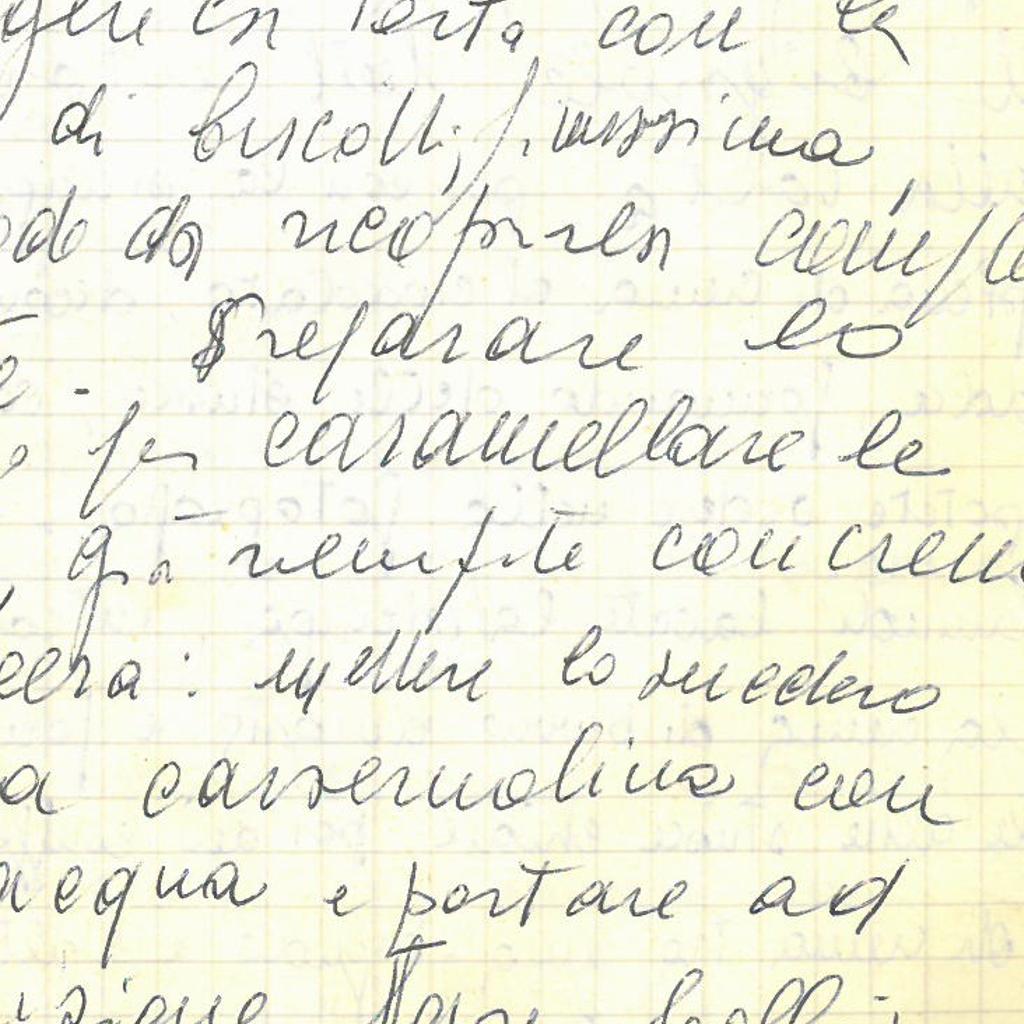 torta con la
di biscotti, finissima
da ricoprirla comple
Preparare lo
per caramellare le
già riempite con crem
: mettere lo zucchero
casseruolina con
acqua e portare ad